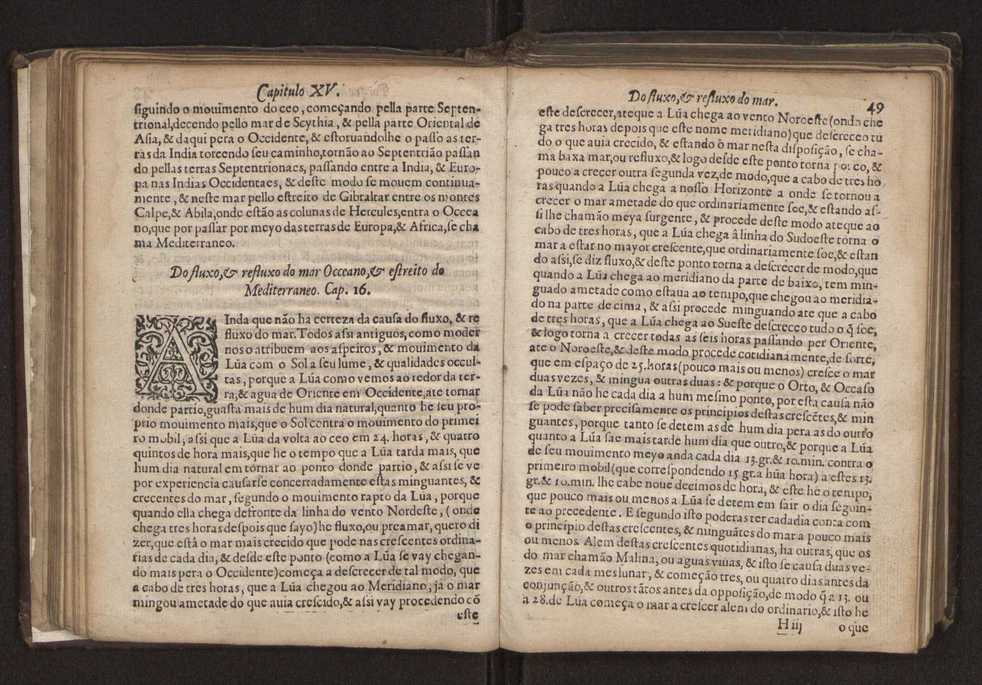 Capitulo XV.
siguindo o mouimento do ceo, começando pella parte Septen-
trional, decendo pello mar de Scythia, & pella parte Oriental de
Asia, & daqui pera o Occidente, & estoruandolhe o passo as ter-
ras da India torcendo seu caminho, tornão ao Septentrião passan
do pellas terras Septentrionaes, passando entre a India, & Euro-
pa nas Indias Occidentaes, & deste modo se mouem continua-
mente, & neste mar pello estreito de Gibraltar entre os montes
Calpe, & Abila, onde estão as colunas de Hercules, entra o Occea
no, que por passar por meyo das terras de Europa, & Africa, se cha
ma Mediterraneo.
Do fluxo, & refluxo do mar Occeano, & estreito do
Mediterraneo. Cap. 16.
AInda que não ha certeza da causa do fluxo, & re
fluxo do mar. Todos assi antiguos, como moder
nos o atribuem aos aspeitos, & mouimento da
Lũa com o Sol a seu lume, & qualidades occul-
tas, porque a Lũa como vemos ao redor da ter-
ra, & agua de Oriente em Occidente, ate tornar
donde partio, guasta mais de hum dia natural, quanto he seu pro-
prio mouimento mais, que o Sol contra o mouimento do primei
ro mobil, assi que a Lũa da volta ao ceo em 24. horas, & quatro
quintos de hora mais, que he o tempo que a Lũa tarda mais, que
hum dia natural em tornar ao ponto donde partio, & assi se ve
por experiencia causarse concertadamente estas minguantes, &
crecentes do mar, segundo o mouimento rapto da Lũa, porque
quando ella chega defronte da linha do vento Nordeste, (onde
chega tres horas despois que sayo) he fluxo, ou preamar, quero di
zer, que està o mar mais crecido que pode nas crescentes ordina-
rias de cada dia, & desde este ponto (como a Lũa se vay chegan-
do mais pera o Occidente) começa a descrecer de tal modo, que
a cabo de tres horas, que a Lũa chegou ao Meridiano, ja o mar
mingou ametade do que auia crescido, & assi vay procedendo cõ
este
Do fluxo, & refluxo do mar. 49
este descrecer, ateque a Lũa chega ao vento Noroeste (onde che
ga tres horas depois que este nome meridiano) que descreceo tu
do o que auia crecido, & estando o mar nesta disposição, se cha-
ma baxa mar, ou refluxo, & logo desde este ponto torna pouco, &
pouco a crecer outra segunda vez, de modo, que a cabo de tres ho
ras quando a Lũa chega a nosso Horizonte a onde se tornou a
crecer o mar ametade do que ordinariamente soe, & estando as-
si lhe chamão meya surgente, & procede deste modo ateque ao
cabo de tres horas, que a Lũa chega à linha do Sudoeste torna o
mar a estar no mayor crescente, que ordinariamente soe, & estan
do assi, se diz fluxo, & deste ponto torna a descrecer de modo, que
quando a Lũa chega ao meridiano da parte de baixo, tem min-
guado ametade como estaua ao tempo, que chegou ao meridia-
do na parte de cima, & assi procede minguando ate que a cabo
de tres horas, que a Lũa chega ao Sueste descreceo tudo o q̃ soe,
& logo torna a crecer todas as seis horas passando per Oriente,
ate o Noroeste, & deste modo procede cotidianamente, de sorte,
que em espaço de 25. horas (pouco mais ou menos) cresce o mar
duas vezes, & mingua outras duas: & porque o Orto, & Occaso
da Lũa não he cada dia a hum mesmo ponto, por esta causa não
se pode saber precisamente os principios destas crescẽtes, & min
guantes, porque tanto se detem as de hum dia pera as do outro
quanto a Lũa sae mais tarde hum dia que outro, & porque a Lũa
de seu mouimento meyo anda cada dia 13. gr. & 10. min. contra o
primeiro mobil (que correspondendo 15 gr. a hũa hora) a estes 13.
gr. & 10. min. lhe cabe noue decimos de hora, & este he o tempo,
que pouco mais ou menos a Lũa se detem em sair o dia seguin-
te ao precedente. E segundo isto poderas ter cada dia conta com
o principio destas crescentes, & minguãtes do mar a pouco mais
ou menos. Alem destas crescentes quotidianas, ha outras, que os
do mar chamão Malina, ou aguas viuas, & isto se causa duas ve-
zes em cada mes lunar, & começão tres, ou quatro dias antes da
conjunção, & outros tãtos antes da opposição, de modo q̃ a 13. ou
a 28. de Lũa começa o mar a crescer alem do ordinario, & isto he
H iij o que